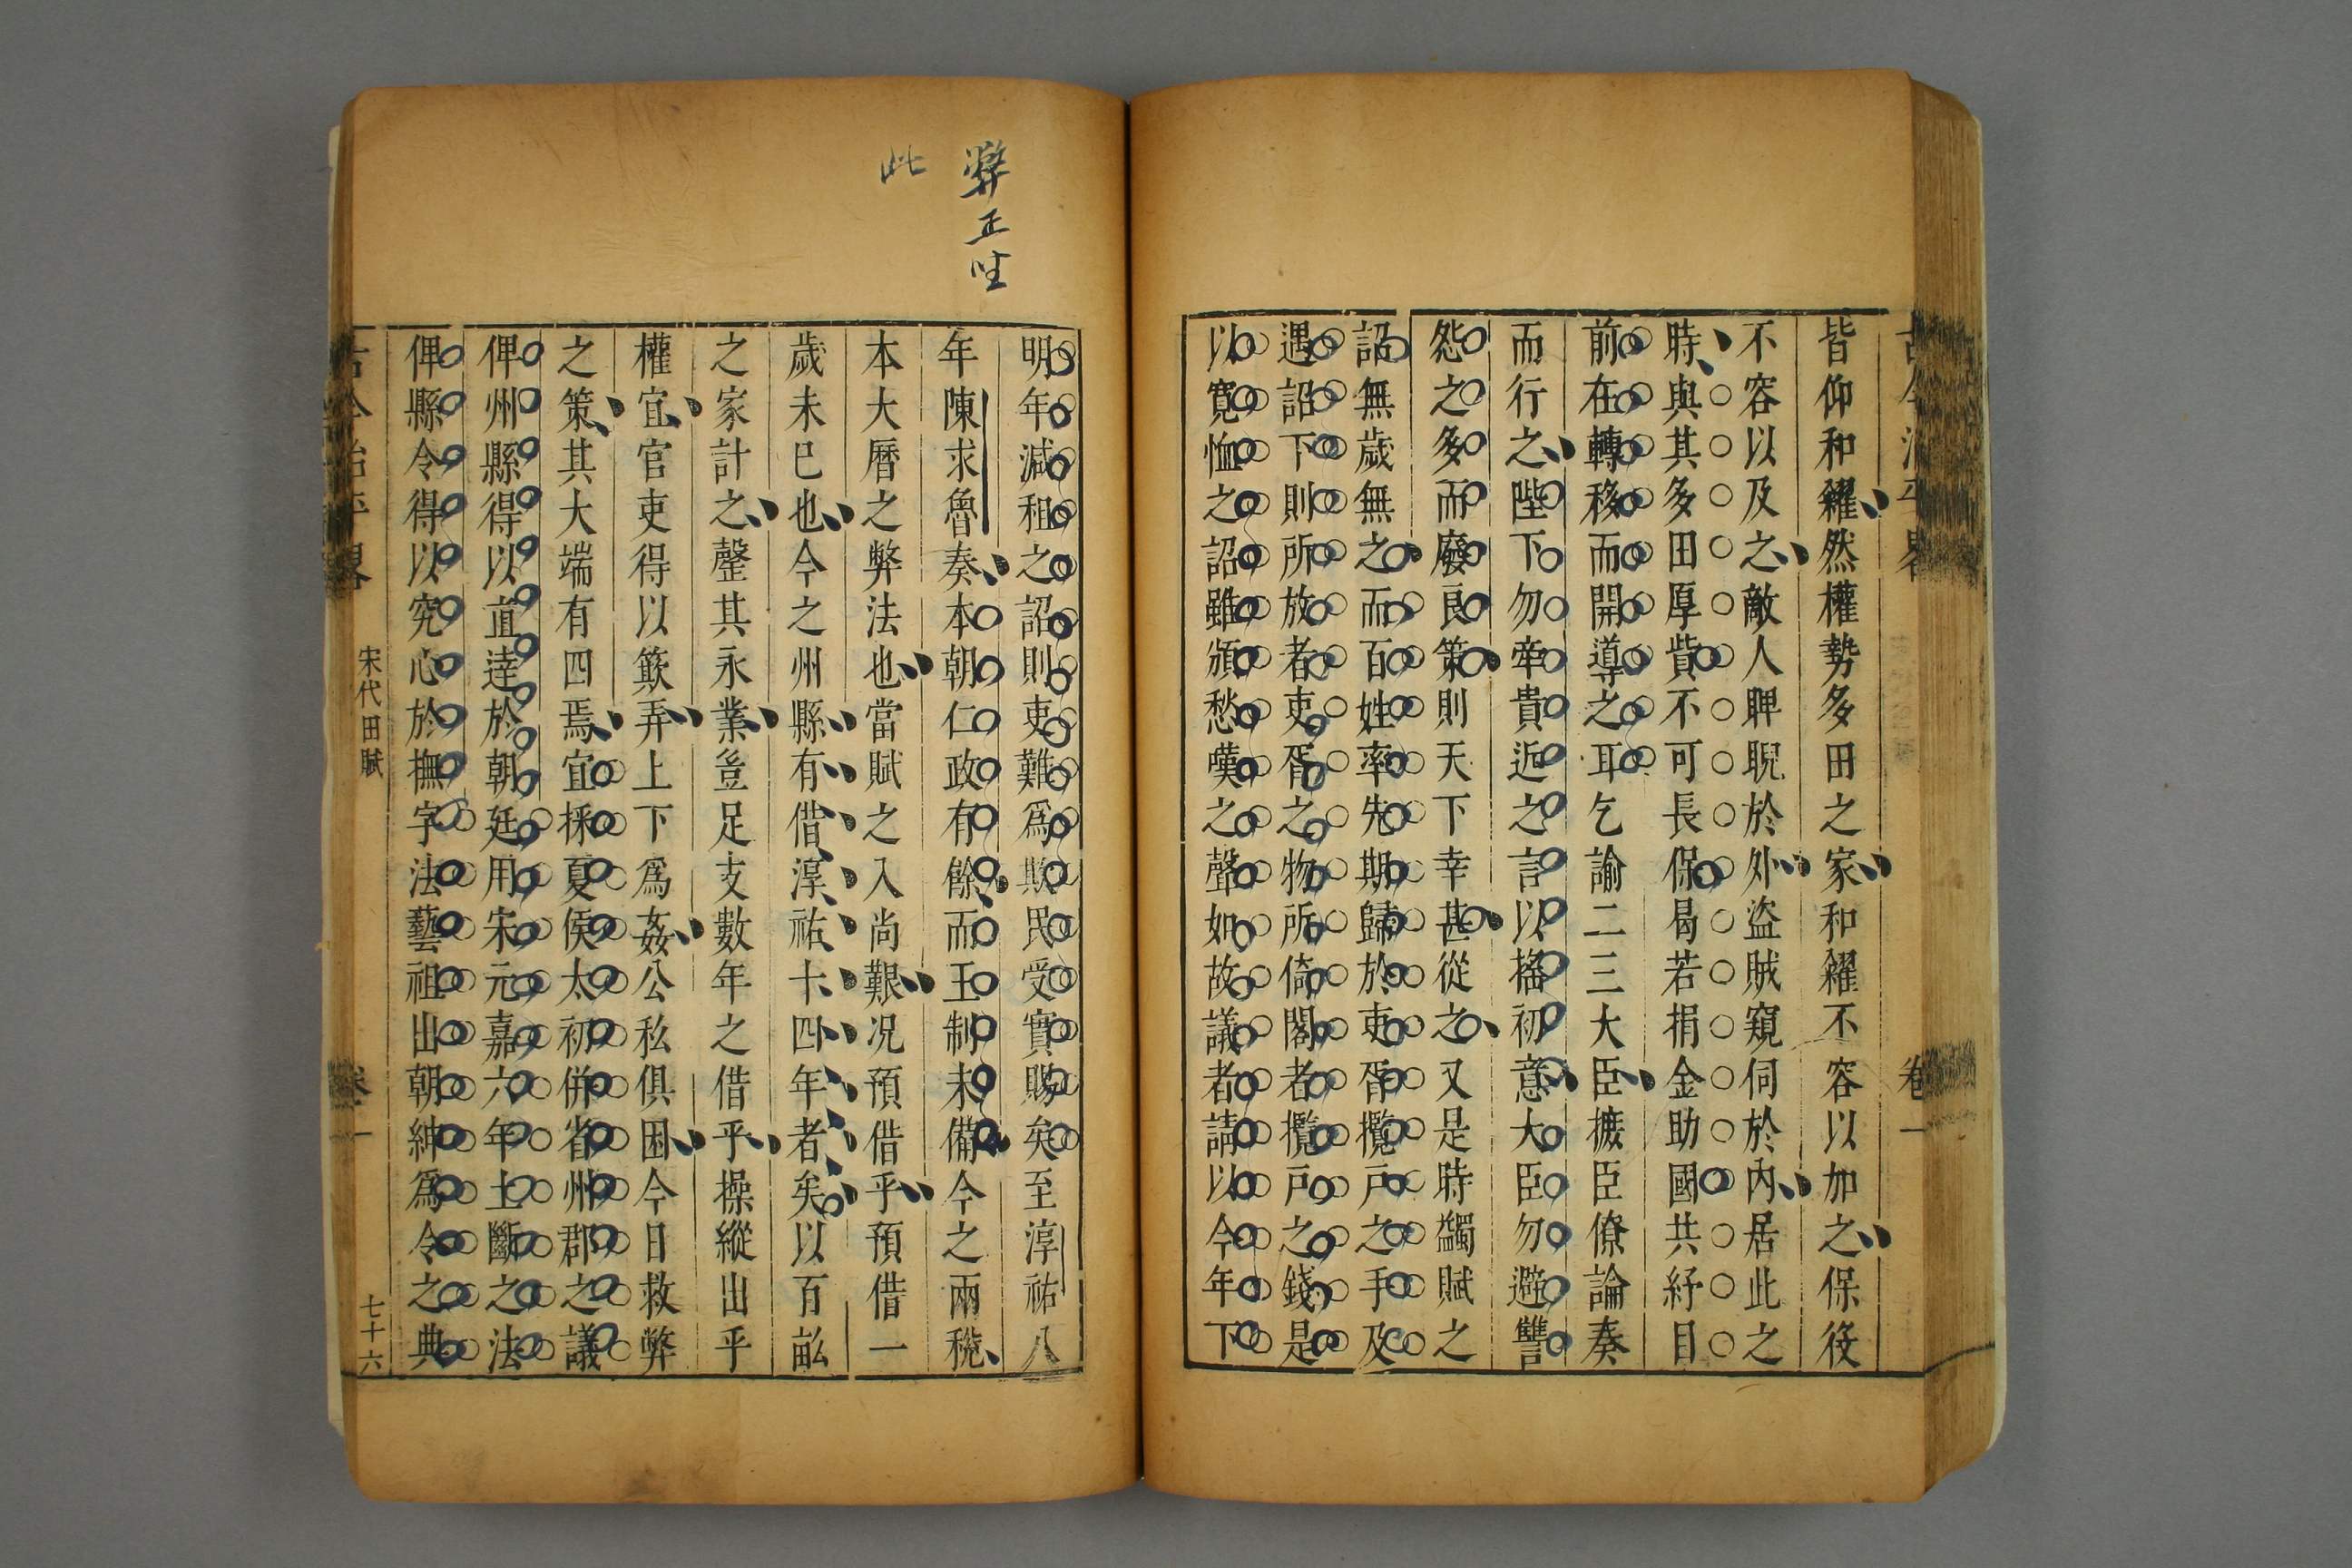 皆仰和糴然權勢多田之家和糴不容以加之保役
不容以及之敵人睥睨於外盜賊窺伺於內居此之
時與其多田厚貲不可長保曷若捐金助國共紓目
前在轉移而開導之耳乞諭二三大臣摭臣僚論奏
而行之陛下勿牽貴近之言以搖初意大臣勿避讐
怨之多而廢良策則天下幸甚從之又是時蠲賦之
詔無歲無之而百姓率先期歸於吏胥攬戶之手及
遇詔下則所放者吏胥之物所倚閣者攬戶之錢是
以寬恤之詔雖頒愁嘆之聲如故議者請以今年下
卷一
弊正坐
此
明年減租之詔則吏難爲欺民受實賜矣至淳祐八
年陳求魯奏本朝仁政有餘而王制未備今之兩稅
本大曆之弊法也當賦之入尚艱况預借乎預借一
歲未已也今之州縣有借淳祐十四年者矣以百畝
之家計之罄其永業豈足支數年之借乎操縱出乎
權宜官吏得以簸弄上下爲姦公私俱困今日救弊
之策其大端有四焉宜採夏侯太初併省州郡之議
俾州縣得以直達於朝廷用宋元嘉六年土斷之法
俾縣令得以究心於撫字法藝祖出朝紳爲令之典
古今治平畧 宋代田賦 卷一 七十六